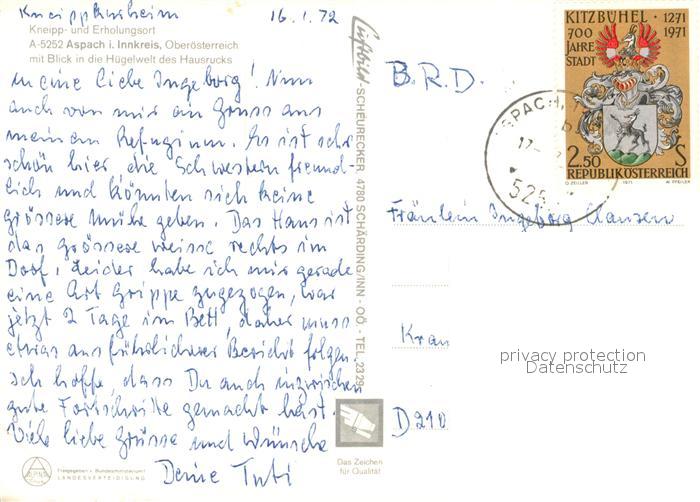 Kneippkurheim 16.1.72
Kneipp- und Erholungsort
A-5252 Aspach i. Innkreis, Oberösterreich
mit Blick in die Hügelwelt des Hausrucks
Meine liebe Ingeborg! Nun
auch von mir ein Gruss aus
meinem Refugium. Es ist sehr
schön hier die Schwestern freund-
lich und könnten sich keine
grössere Mühe geben. Das Haus ist
das grössere weisse rechts im
Dorf, leider habe ich mir gerade
eine Art Grippe zugezogen, war
jetzt 2 Tage im Bett, daher muss
etwas ausführlicherer Bericht folgen.
Ich hoffe, dass Du auch inzwischen
gute Fortschritte gemacht hast.
Viele liebe Grüsse und Wünsche
Deine Tuti
Freigegeben v. Bundesministerium f.
LANDESVERTEIDIGUNG
Luftbild-SCHEURECKER, 4780 SCHÄRDING/INN - OÖ - TEL. 2329
Das Zeichen
für Qualität
B.R.D.
KITZBÜHEL · 1271
700 1971
JAHRE
STADT
2.50 S
REPUBLIK ÖSTERREICH
O. ZEILLER 1971 A. FISCHER
ASPACH
17
52
Fräulein Ingeborg Clausen
Kran
D 210
privacy protection
Datenschutz